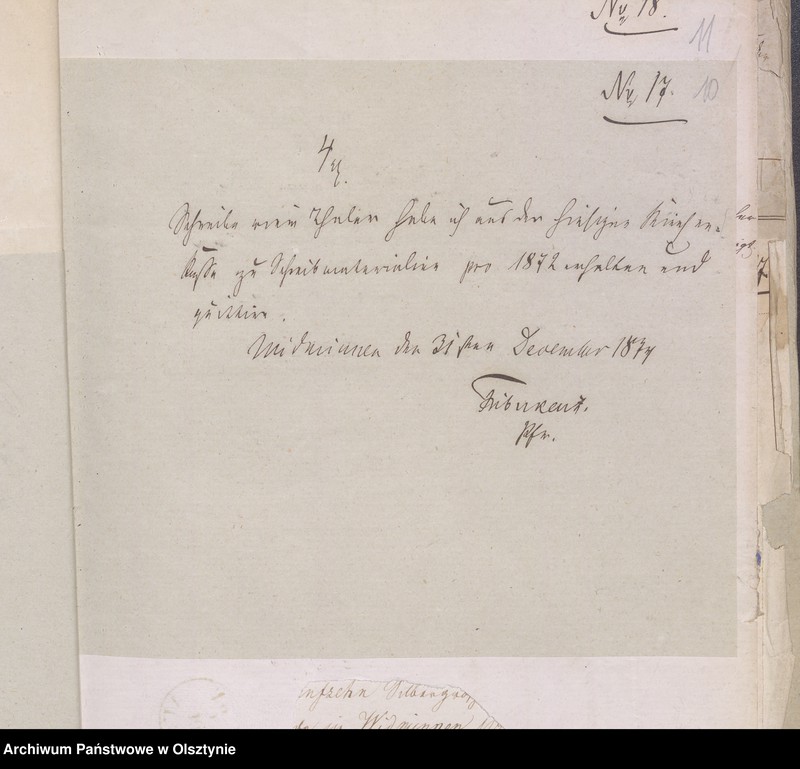 No 18.
11
No 17.
10
4 rt.
Schreibe vier Thaler habe ich aus der hiesigen Kirchen-
kasse zu Schreibmaterialien pro 1872 erhalten und
quittire.
Widminnen den 31sten December 1872
Pfr.
fzehn Silbergro
Widminnen
Archiwum Państwowe w Olsztynie